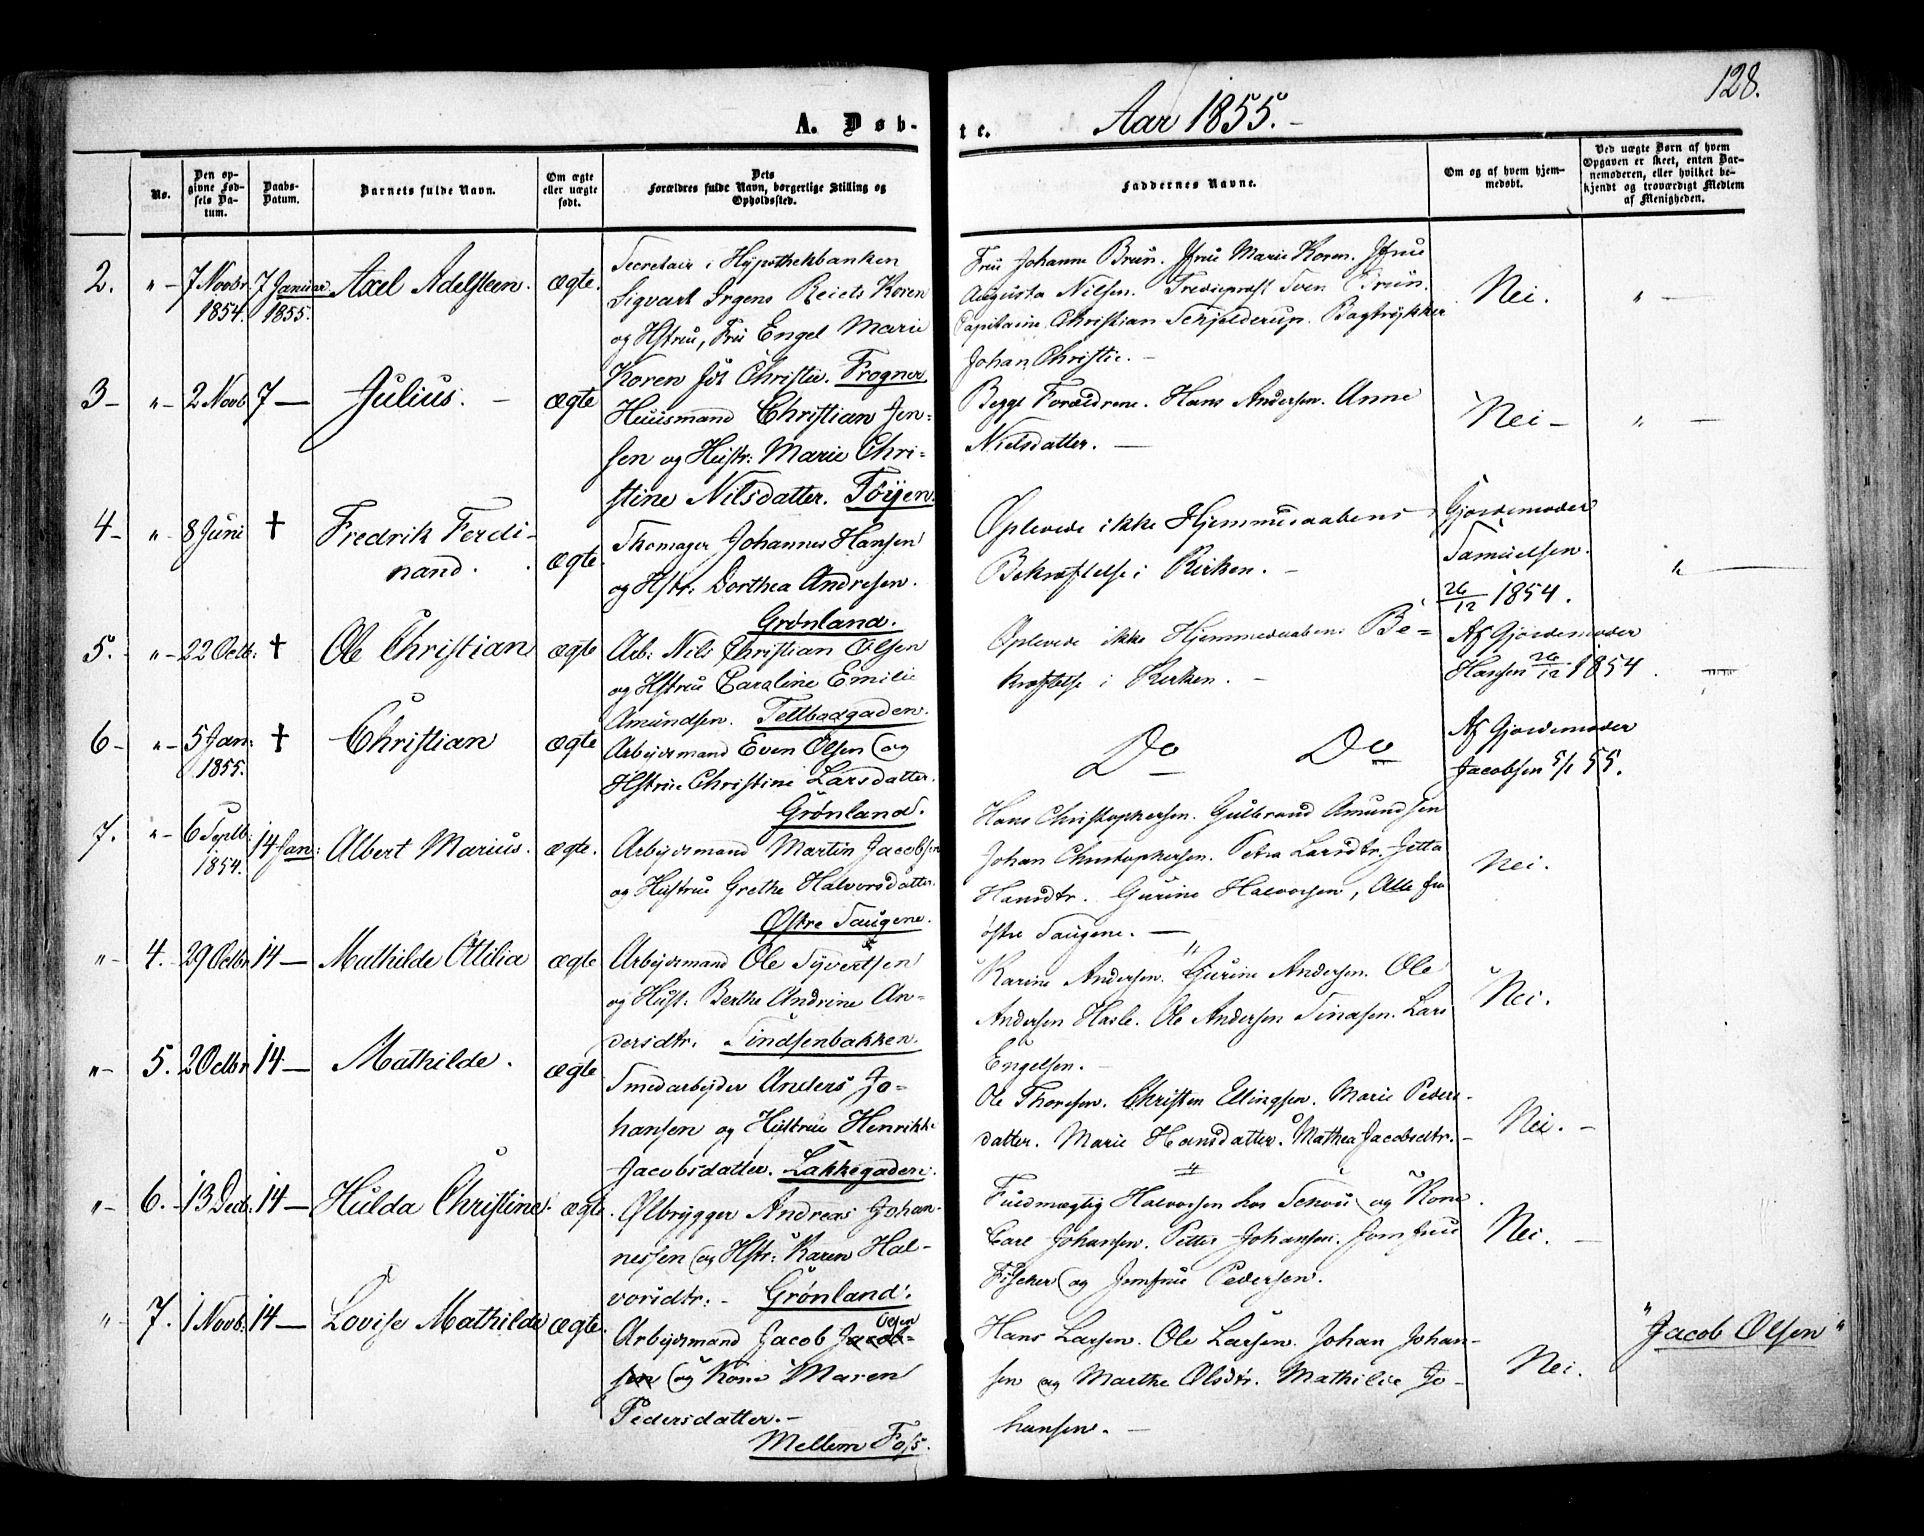 128.
A. Døb-
te.
Aar 1855.-
No.
Den op-
givne Fød-
sels Da-
tum.
Daabs-
Datum.
Barnets fulde Navn.
Om ægte
eller uægte
født.
Dets
Forældres fulde Navn, borgerlige Stilling og
Opholdssted.
Faddernes Navne.
Om og af hvem hjem-
medøbt.
Ved uægte Børn af hvem
Opgaven er skeet, enten Bar-
nemoderen, eller hvilket be-
kjendt og troværdigt Medlem
af Menigheden.
2. " - 7 Novbr 1854. 7 Januar 1855. Axel Adelsteen. ægte.
Secretair i Hypothekbanken
Sigvart Irgens Reiets Koren
og Hstru, Fru Engel Marie
Koren fød Christie. Frogner
Fru Johanne Brun. Jfru Marie Koren. Jfru
Augusta Nilsen. Stven Brun.
Capitaine Christian Schjelderup. Bogtrykker
Johan Christie. -
Nei. " -
3 - " - 2 Novb 7 - Julius. - ægte
Huusmand Christian Jen-
sen og Hustr: Marie Chri-
stine Nilsdatter. Töyen.
Begge Forældrene. Hans Andersen. Anne
Nielsdatter. -
Nei - " -
4 - " - 8 Juni † Fredrik Ferdi-
nand. ægte.
Johannes Hansen
og Hstr: Dorthea Andresen.
Grønland.
Oplevede ikke Hjemmedaabens
Bekræftelse i Kirken. -
Gjordemoder
Samuelsen.
26/12 1854.
" -
5. " - 22 Octb: † Ole Christian ægte
Arb: Nils Christian Olsen
og Hstru Caroline Emilie
Amundsen. Teltbadgaden.
Oplevede ikke Hjemmedaabens Be-
kræftelse i Kirken. -
Af Gjordemoder
Hansen 26/12 1854.
6 - " - 5 Jan: 1855. † Christian ægte
Arbejdsmand Even Olsen og
Hstrue Christine Larsdatter.
Grønland.
Do Do
Af Gjordemoder
Jacobsen 5/1 55.
7. " - 6 Septb: 1854. 14 Jan: Albert Marius. ægte.
Arbejdsmand Martin Jacobsen
og Hustrue Grethe Halvorsdatter.
Østre Saugene.
Hans Christophersen. Gulbrand Amundsen
Johan Christophersen. Petra Larsdtr. Jetta
Hansdtr. Gurine Halvorsen, Alle fra
østre Saugene. -
Nei.
" - 4. 29 Octbr 14 - Mathilde Ottilia ægte
Arbejdsmand Ole Syvertsen
og Hust: Berthe Andrine An-
dersdtr. Tindsenbakken.
Karine Andersen. Gurine Andersen. Ole
Andersen Hasle. Ole Andersen Tinasen. Lars
Engelsen. -
Nei.
" - 5. 2 Octbr 14 - Mathilde. ægte
Smedarbejder Anders Jo-
hansen og Hustrue Henrikke
Jacobsdatter. Lakkegaden.
Ole Thoresen. Christen Ellingsen. Marie Peders-
datter. Marie Hansdatter. Mathea Jacobsdtr. -
Nei. -
" - 6. - 13 Decb: 14 - Hulda Christine. ægte.
Ølbrygger Andreas Johan-
nessen og Hstr: Karen Hal-
vorsdtr: - Grønland.
Fuldmægtig Halvorsen hos og Kone.
Carl Johansen. Petter Johansen. Jomfrue
Fischer og Jomfrue Pedersen.
Nei. -
" - 7. 1 Novb: 14 - Lovise Mathilde ægte.
Arbejdsmand Jacob Jacob-
sen Olsen og Kone Maren
Pedersdatter. -
Mellem Foss.
Hans Larsen. Ole Larsen. Johan Johan-
sen og Marthe Olsdtr. Mathilde Jo-
hansen. -
Nei.
"Jacob Olsen"